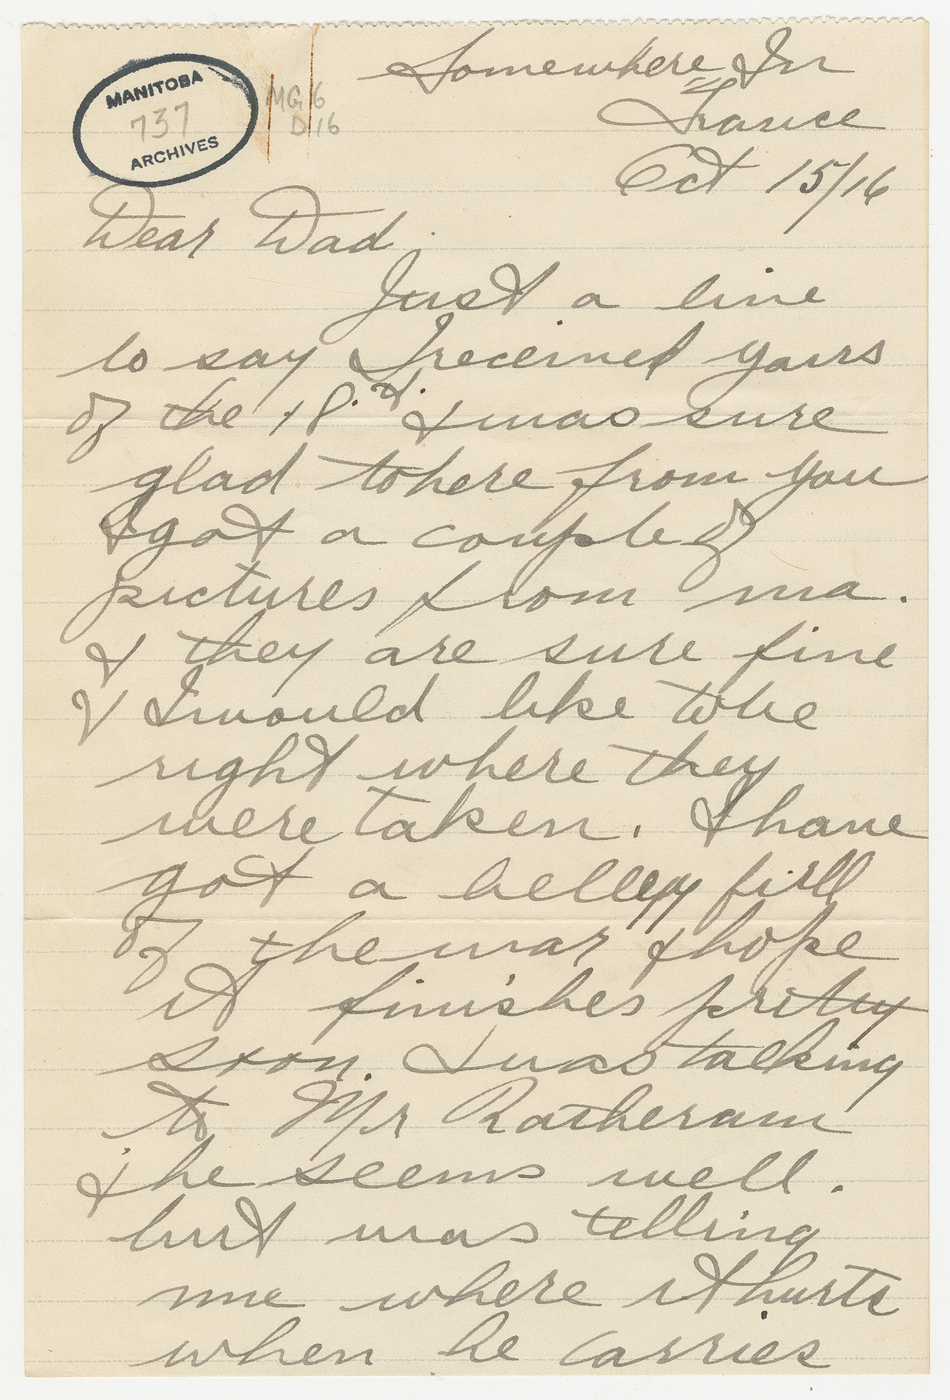 MANITOBA
737
ARCHIVES
MG 6
D 16
Somewhere In
France
Oct 15/16
Dear Dad.
Just a line
to say I received yours
of the 18.th. & was sure
glad to here from you
& got a couple of
pictures from ma.
& they are sure fine
& I would like to be
right where they
were taken. I have
got a belley full
of the war & hope
it finishes pretty
soon. I was talking
to Mr Ratheram
& he seems well.
but was telling
me where it hurts
when he carries